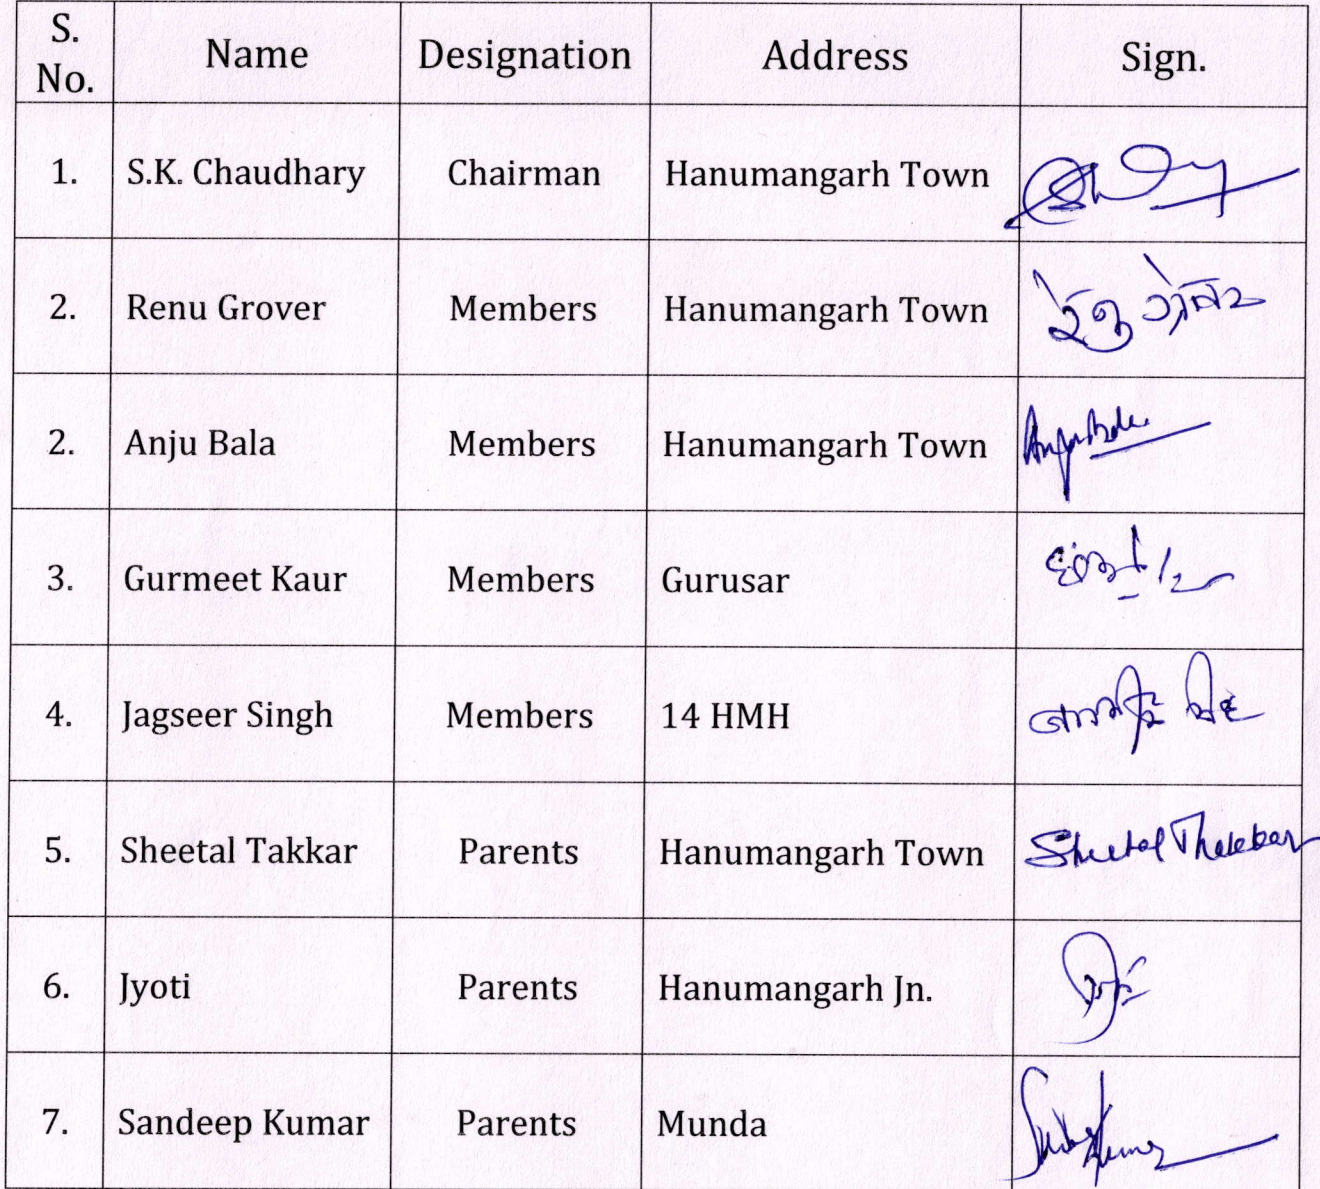 S. No. Name Designation Address Sign.
1. S.K. Chaudhary Chairman Hanumangarh Town
2. Renu Grover Members Hanumangarh Town रेनु ग्रोवर
2. Anju Bala Members Hanumangarh Town Anju Bala
3. Gurmeet Kaur Members Gurusar
4. Jagseer Singh Members 14 HMH
5. Sheetal Takkar Parents Hanumangarh Town Sheetal Thakkar
6. Jyoti Parents Hanumangarh Jn.
7. Sandeep Kumar Parents Munda